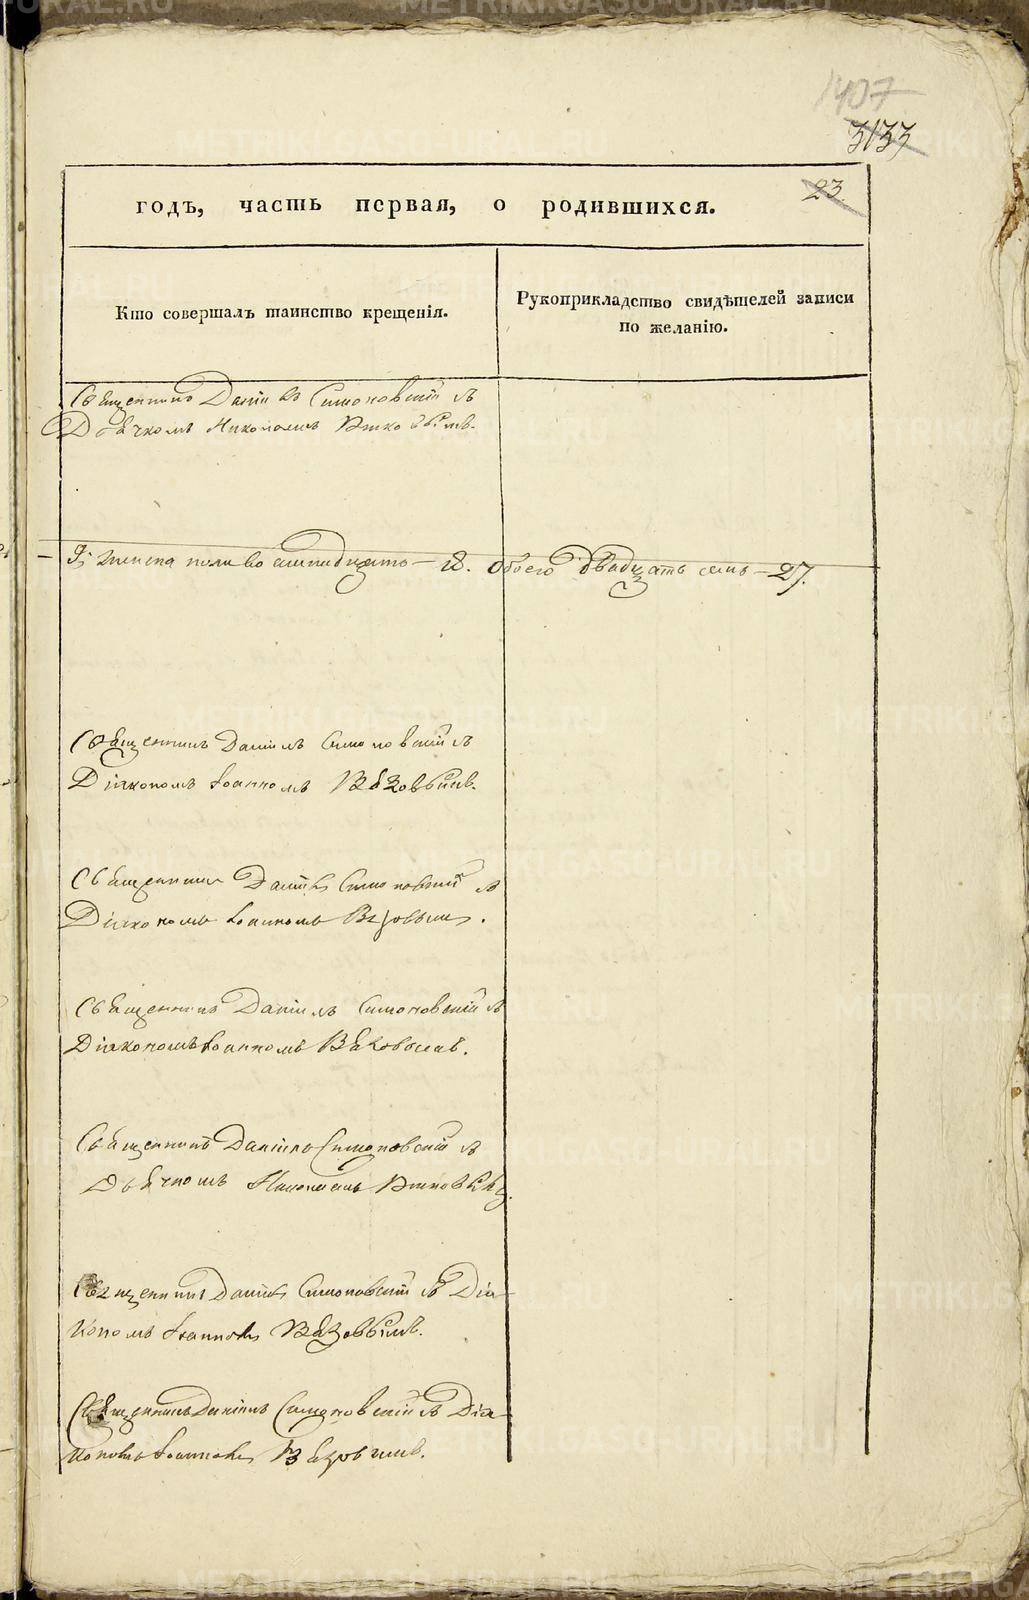 1407
3133
23.
годъ, часть первая, о родившихся.
Кто совершалъ таинство крещенія.
Рукоприкладство свидѣтелей записи
по желанію.
Священникъ Даніилъ Симоновскій съ
Дьячкомъ Николаемъ
женска пола восемнадцать — 18. Обоего двадцать семь — 27.
Священникъ Даніилъ Симоновскій съ
Діакономъ Іоанномъ Вѣзовымъ.
Священникъ Даніилъ Симоновскій съ
Діакономъ Іоанномъ Вѣзовымъ.
Священникъ Даніилъ Симоновскій съ
Діакономъ Іоанномъ Вѣзовымъ.
Священникъ Даніилъ Симоновскій съ
Дьячкомъ Николаемъ
Священникъ Даніилъ Симоновскій съ Діа-
кономъ Іоанномъ Вѣзовымъ.
Священникъ Даніилъ Симоновскій съ Діа-
кономъ Іоанномъ Вѣзовымъ.
METRIKI.GASO-URAL.RU